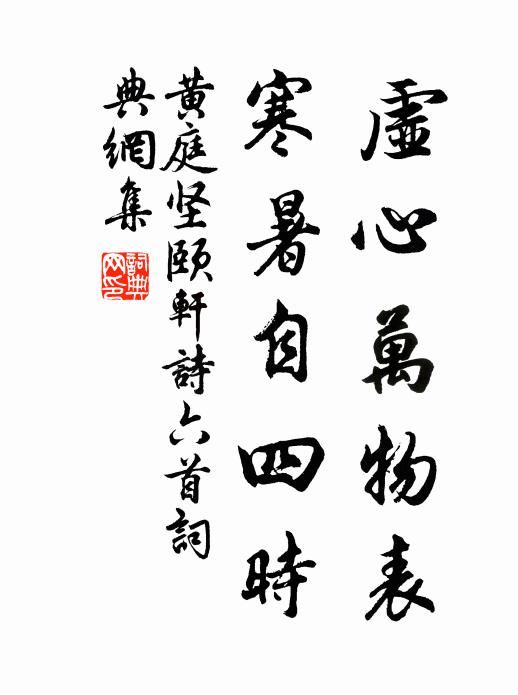 虛心萬物表
寒暑自四時
黃庭坚頤軒詩六首詞
典網集
詞典網印